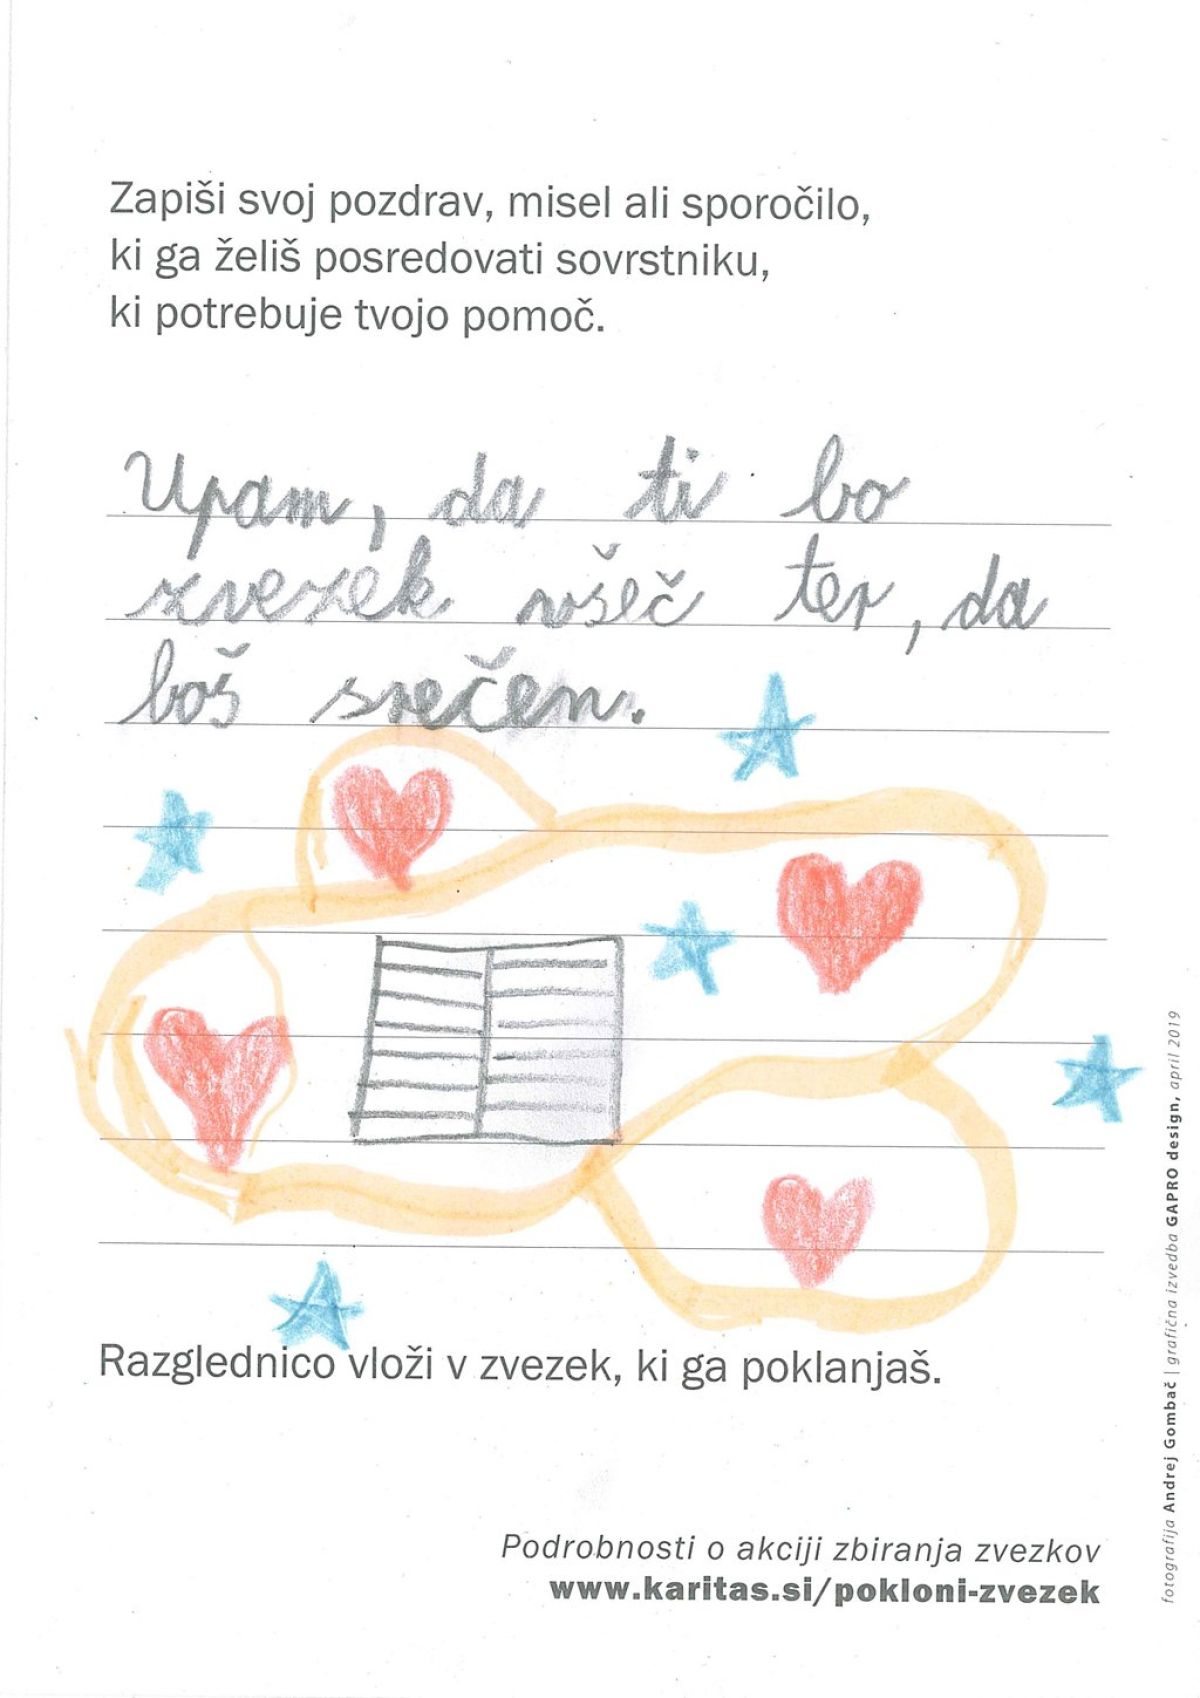 Zapiši svoj pozdrav, misel ali sporočilo,
ki ga želiš posredovati sovrstniku,
ki potrebuje tvojo pomoč.
Upam, da ti bo
zvezek všeč ter, da
boš srečen.
Razglednico vloži v zvezek, ki ga poklanjaš.
Podrobnosti o akciji zbiranja zvezkov
www.karitas.si/pokloni-zvezek
fotografija Andrej Gombač | grafična izvedba GAPRO design, april 2019